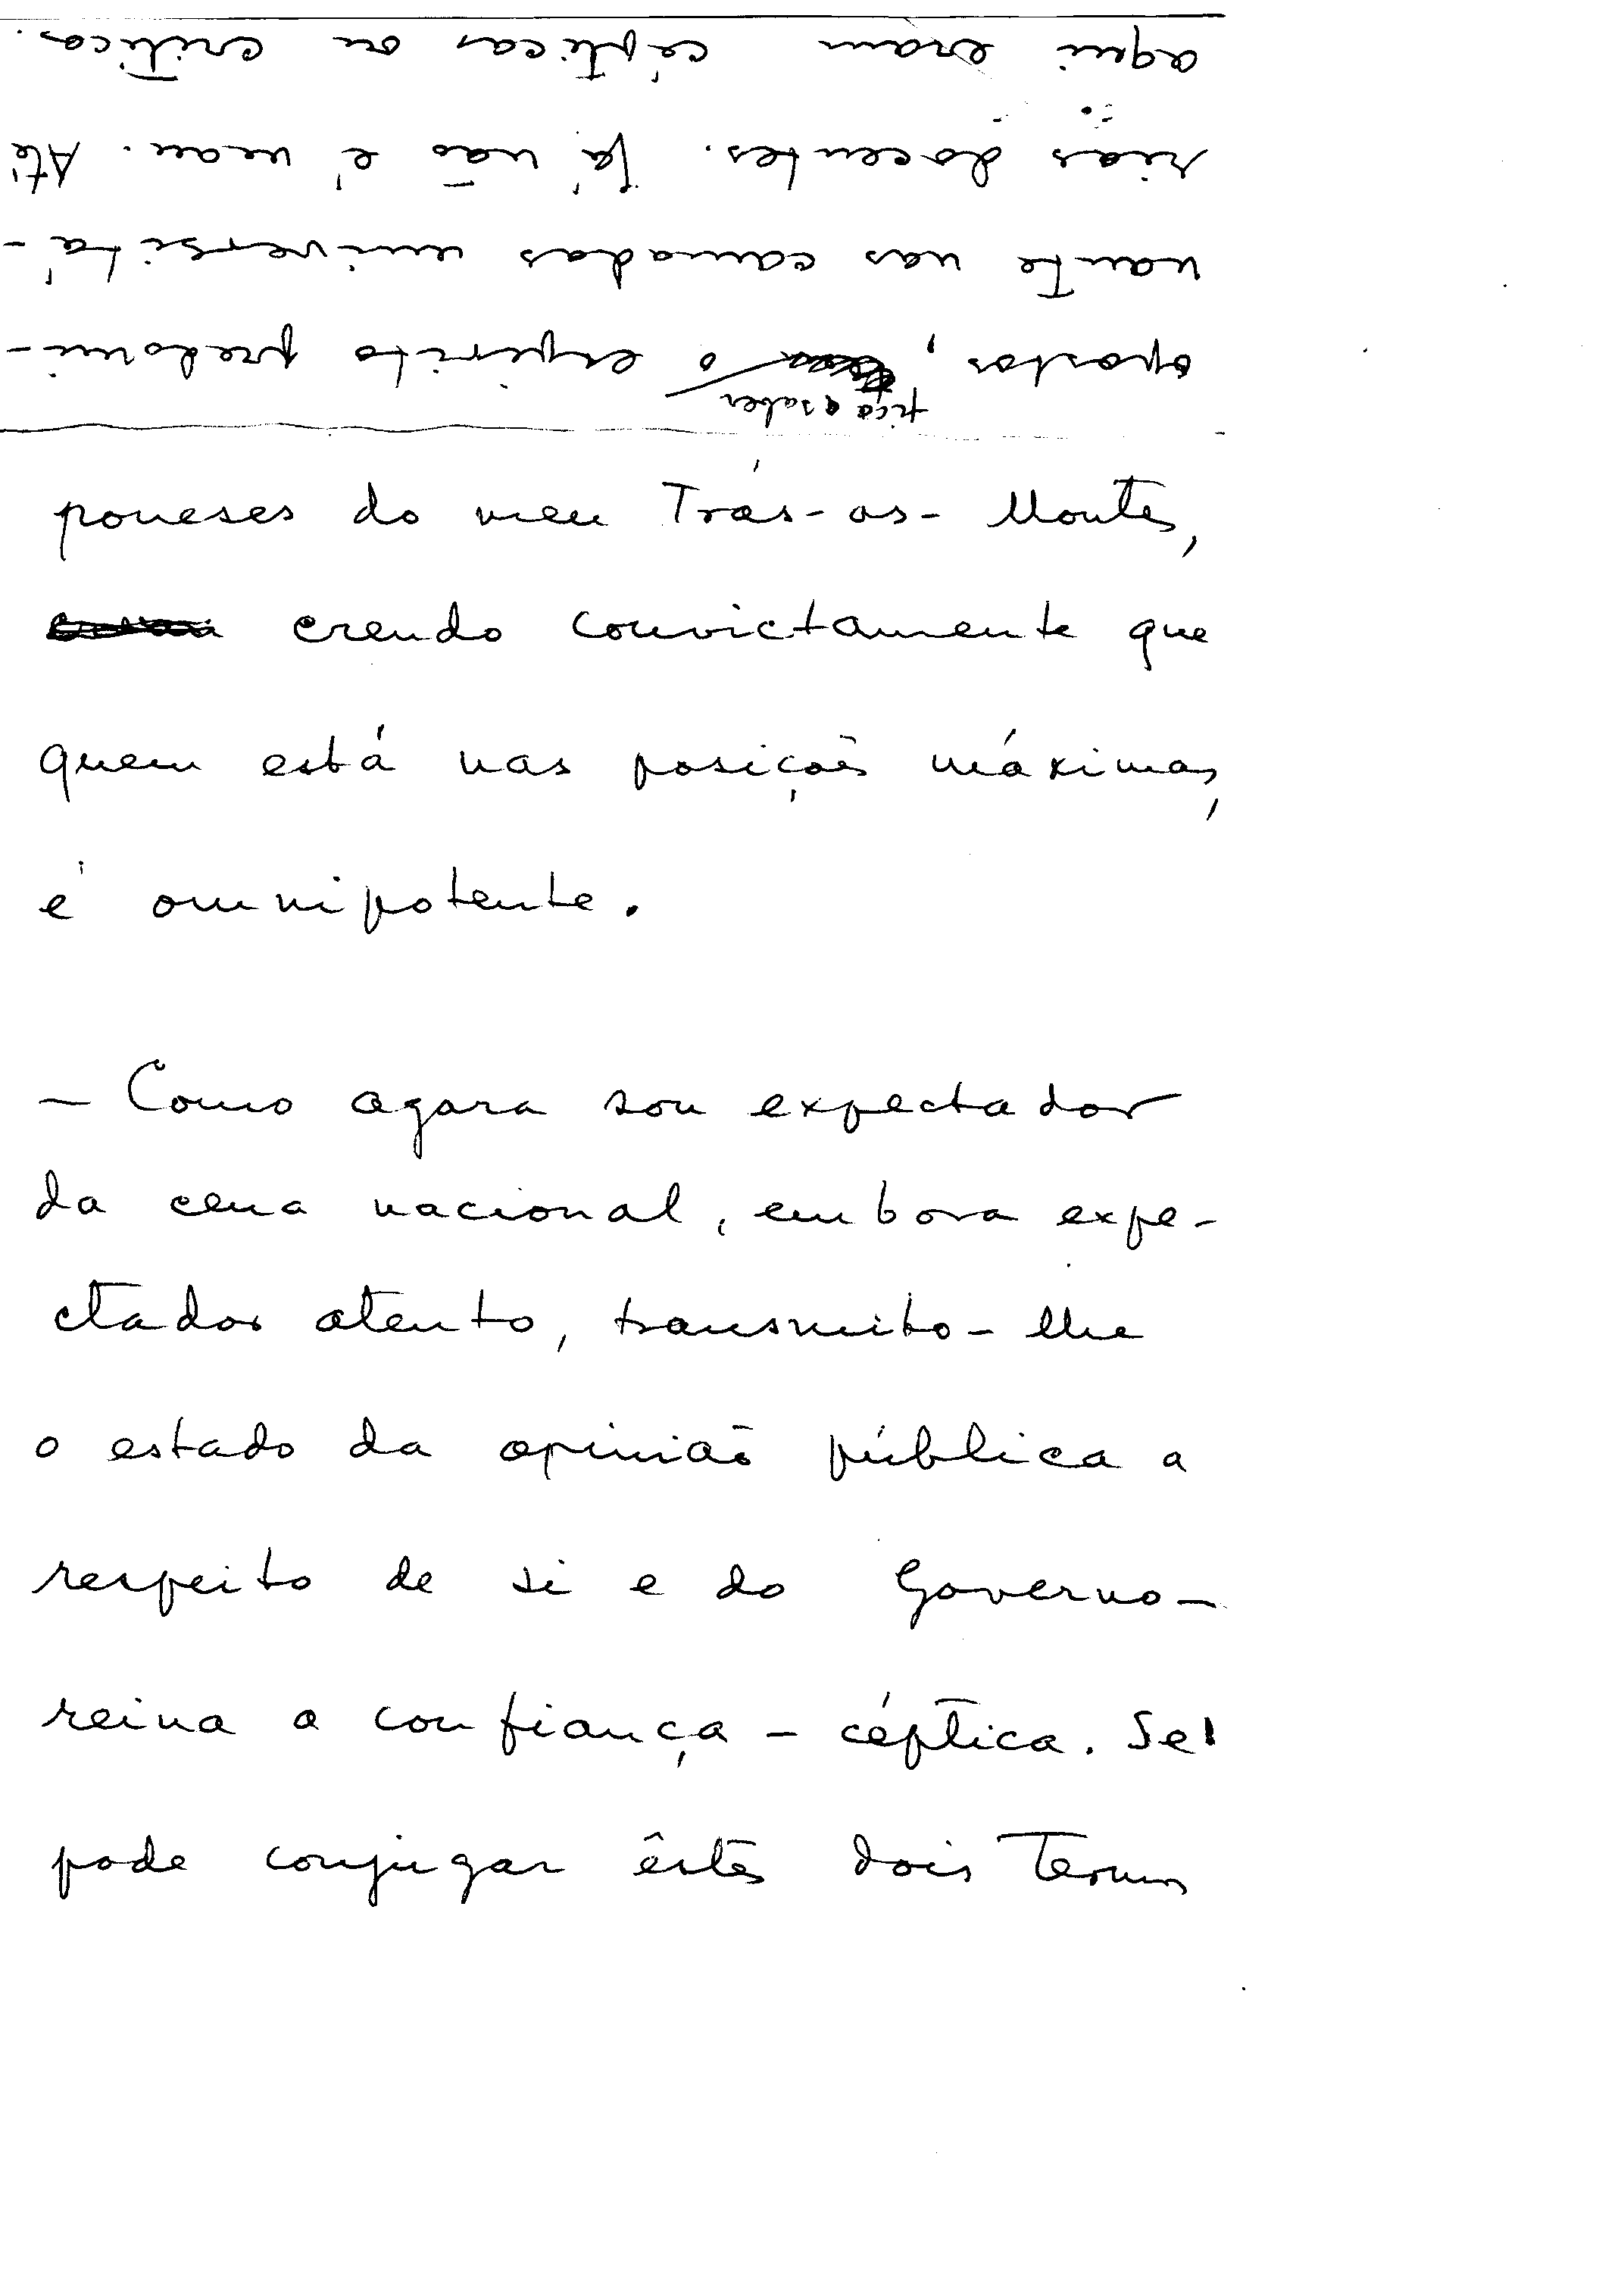 poneses do meu Trás-os-Montes,
crendo convictamente que
quem está nas posições máximas,
é omnipotente.
— Como agora sou expectador
da cena nacional, embora expe-
ctador atento, transmito-lhe
o estado da opinião pública a
respeito de si e do Governo —
reina a confiança - céptica. Se
pode conjugar êstes dois termos
opostos, fica a saber o espírito predomi-
nante nas camadas universitá-
rias docentes. Já não é mau. Até
aqui eram cépticas ou críticas.